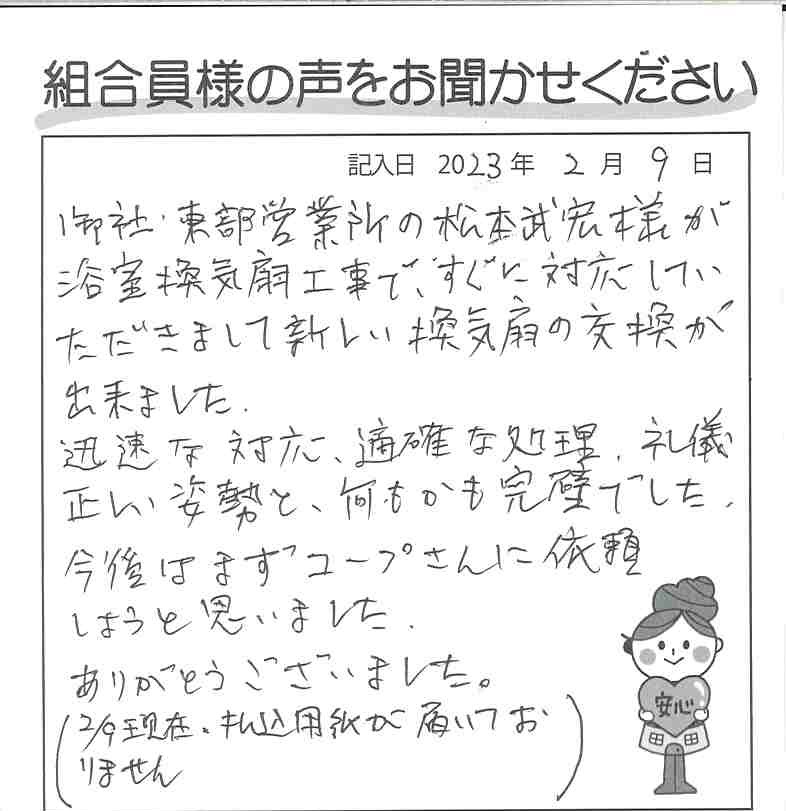 組合員様の声をお聞かせください
記入日 2023年 2月 9日
御社・東部営業所の松本武宏様が
浴室換気扇工事で、すぐに対応してい
ただきまして新しい換気扇の交換が
出来ました.
迅速な対応、適確な処理、礼儀
正しい姿勢と、何もかも完璧でした.
今後はまずコープさんに依頼
しようと思いました.
ありがとうございました。
(2/9現在、払込用紙が届いてお
りません)
安心